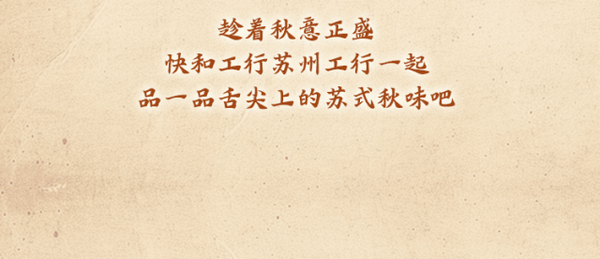 趁着秋意正盛
快和工行苏州工行一起
品一品舌尖上的苏式秋味吧